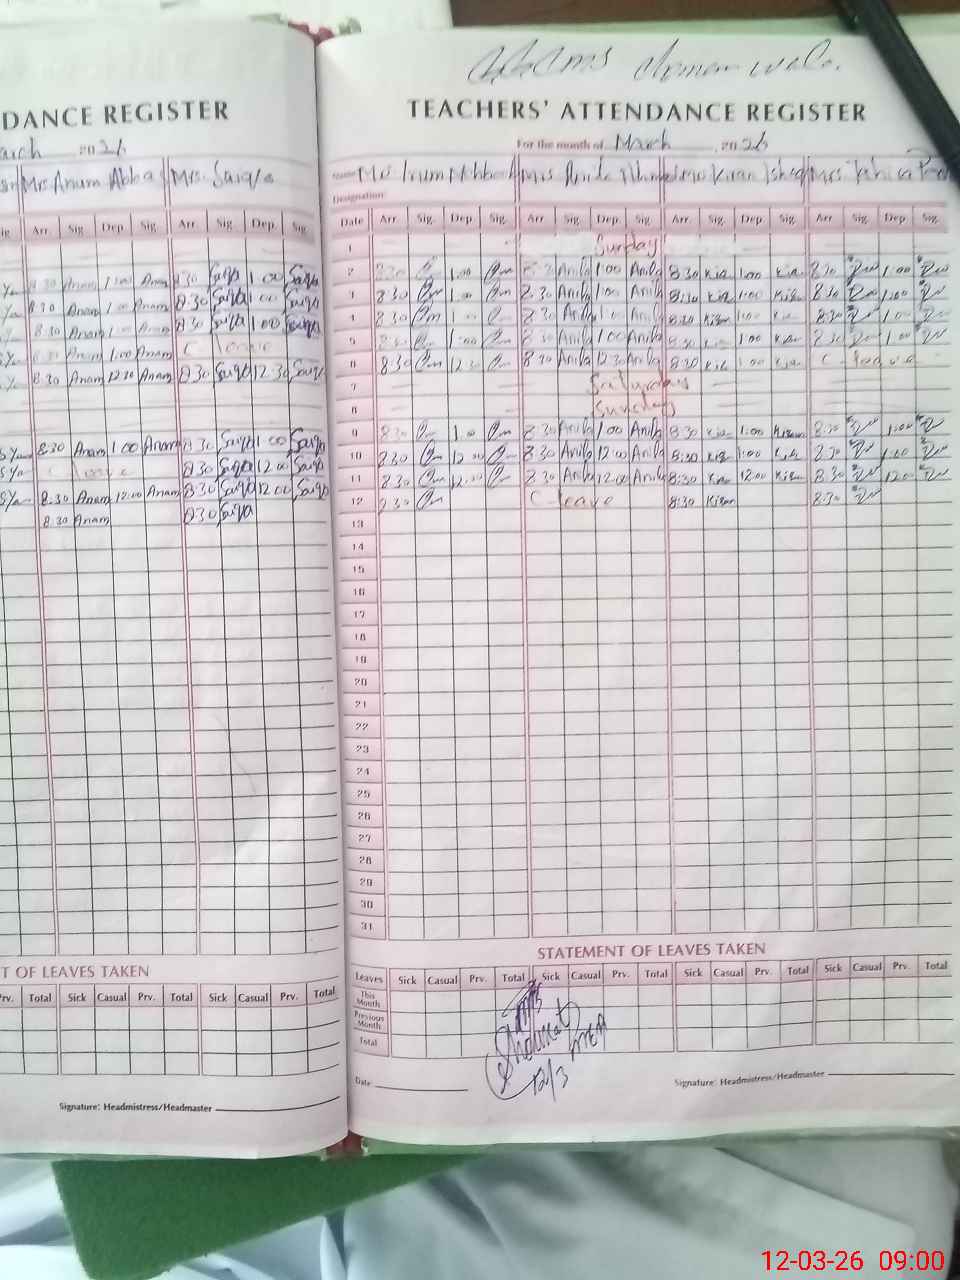 DANCE REGISTER
arch 2026
Mrs Anum Abbas Mrs. Saiqa
Arr. Sig. Dep. Sig. Arr. Sig. Dep. Sig.
8:30 Anam 1:00 Anam 8:30 Saiqa 1:00 Saiqa
8:30 Anam 1:00 Anam 8:30 Saiqa 1:00 Saiqa
8:30 Anam 1:00 Anam 8:30 Saiqa 1:00 Saiqa
8:30 Anam 1:00 Anam C leave
8:30 Anam 12:30 Anam 8:30 Saiqa 12:30 Saiqa
8:30 Anam 1:00 Anam 8:30 Saiqa 1:00 Saiqa
C leave 8:30 Saiqa 12:00 Saiqa
8:30 Anam 12:00 Anam 8:30 Saiqa 12:00 Saiqa
8:30 Anam 8:30 Saiqa
T OF LEAVES TAKEN
Prv. Total Sick Casual Prv. Total Sick Casual Prv. Total
Signature: Headmistress/Headmaster
TEACHERS' ATTENDANCE REGISTER
For the month of March 2026
Name Mrs Kiran Ishaq
Designation
Date Arr. Sig. Dep. Sig. Arr. Sig. Dep. Sig. Arr. Sig. Dep. Sig. Arr. Sig. Dep. Sig.
1 Sunday
2 8:30 1:00 8:30 Anila 1:00 Anila 8:30 Kiran 1:00 Kiran 8:30 1:00
3 8:30 1:00 8:30 Anila 1:00 Anila 8:30 Kiran 1:00 Kiran 8:30 1:00
4 8:30 1:00 8:30 Anila 1:00 Anila 8:30 Kiran 1:00 Kiran 8:30 1:00
5 8:30 1:00 8:30 Anila 1:00 Anila 8:30 Kiran 1:00 Kiran 8:30 1:00
6 8:30 12:30 8:30 Anila 12:30 Anila 8:30 Kiran 1:00 Kiran C leave
7 Saturday
8 Sunday
9 8:30 1:00 8:30 Anila 1:00 Anila 8:30 Kiran 1:00 Kiran 8:30 1:00
10 8:30 12:00 8:30 Anila 12:00 Anila 8:30 Kiran 1:00 Kiran 8:30 1:00
11 8:30 12:00 8:30 Anila 12:00 Anila 8:30 Kiran 12:00 Kiran 8:30 12:00
12 8:30 C leave 8:30 Kiran 8:30
13
14
15
16
17
18
19
20
21
22
23
24
25
26
27
28
29
30
31
STATEMENT OF LEAVES TAKEN
Leaves Sick Casual Prv. Total Sick Casual Prv. Total Sick Casual Prv. Total Sick Casual Prv. Total
This Month
Previous Month
Total
Shoukat MEA
12/3
Date
Signature: Headmistress/Headmaster
12-03-26 09:00